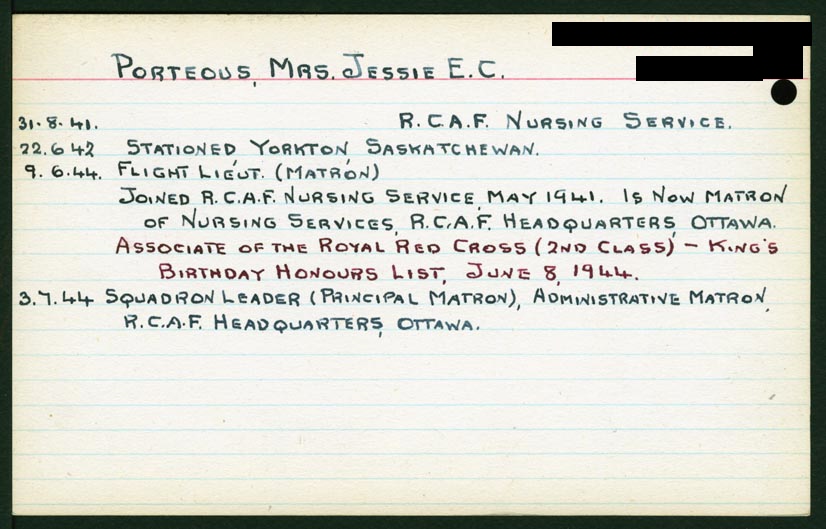 PORTEOUS, MRS. JESSIE E.C.
31.8.41. R.C.A.F. NURSING SERVICE.
22.6.42 STATIONED YORKTON, SASKATCHEWAN.
9.6.44. FLIGHT LIEUT. (MATRON)
JOINED R.C.A.F. NURSING SERVICE, MAY 1941. IS NOW MATRON
OF NURSING SERVICES, R.C.A.F. HEADQUARTERS, OTTAWA.
ASSOCIATE OF THE ROYAL RED CROSS (2ND CLASS) - KING'S
BIRTHDAY HONOURS LIST, JUNE 8, 1944.
3.7.44 SQUADRON LEADER (PRINCIPAL MATRON), ADMINISTRATIVE MATRON,
R.C.A.F. HEADQUARTERS, OTTAWA.